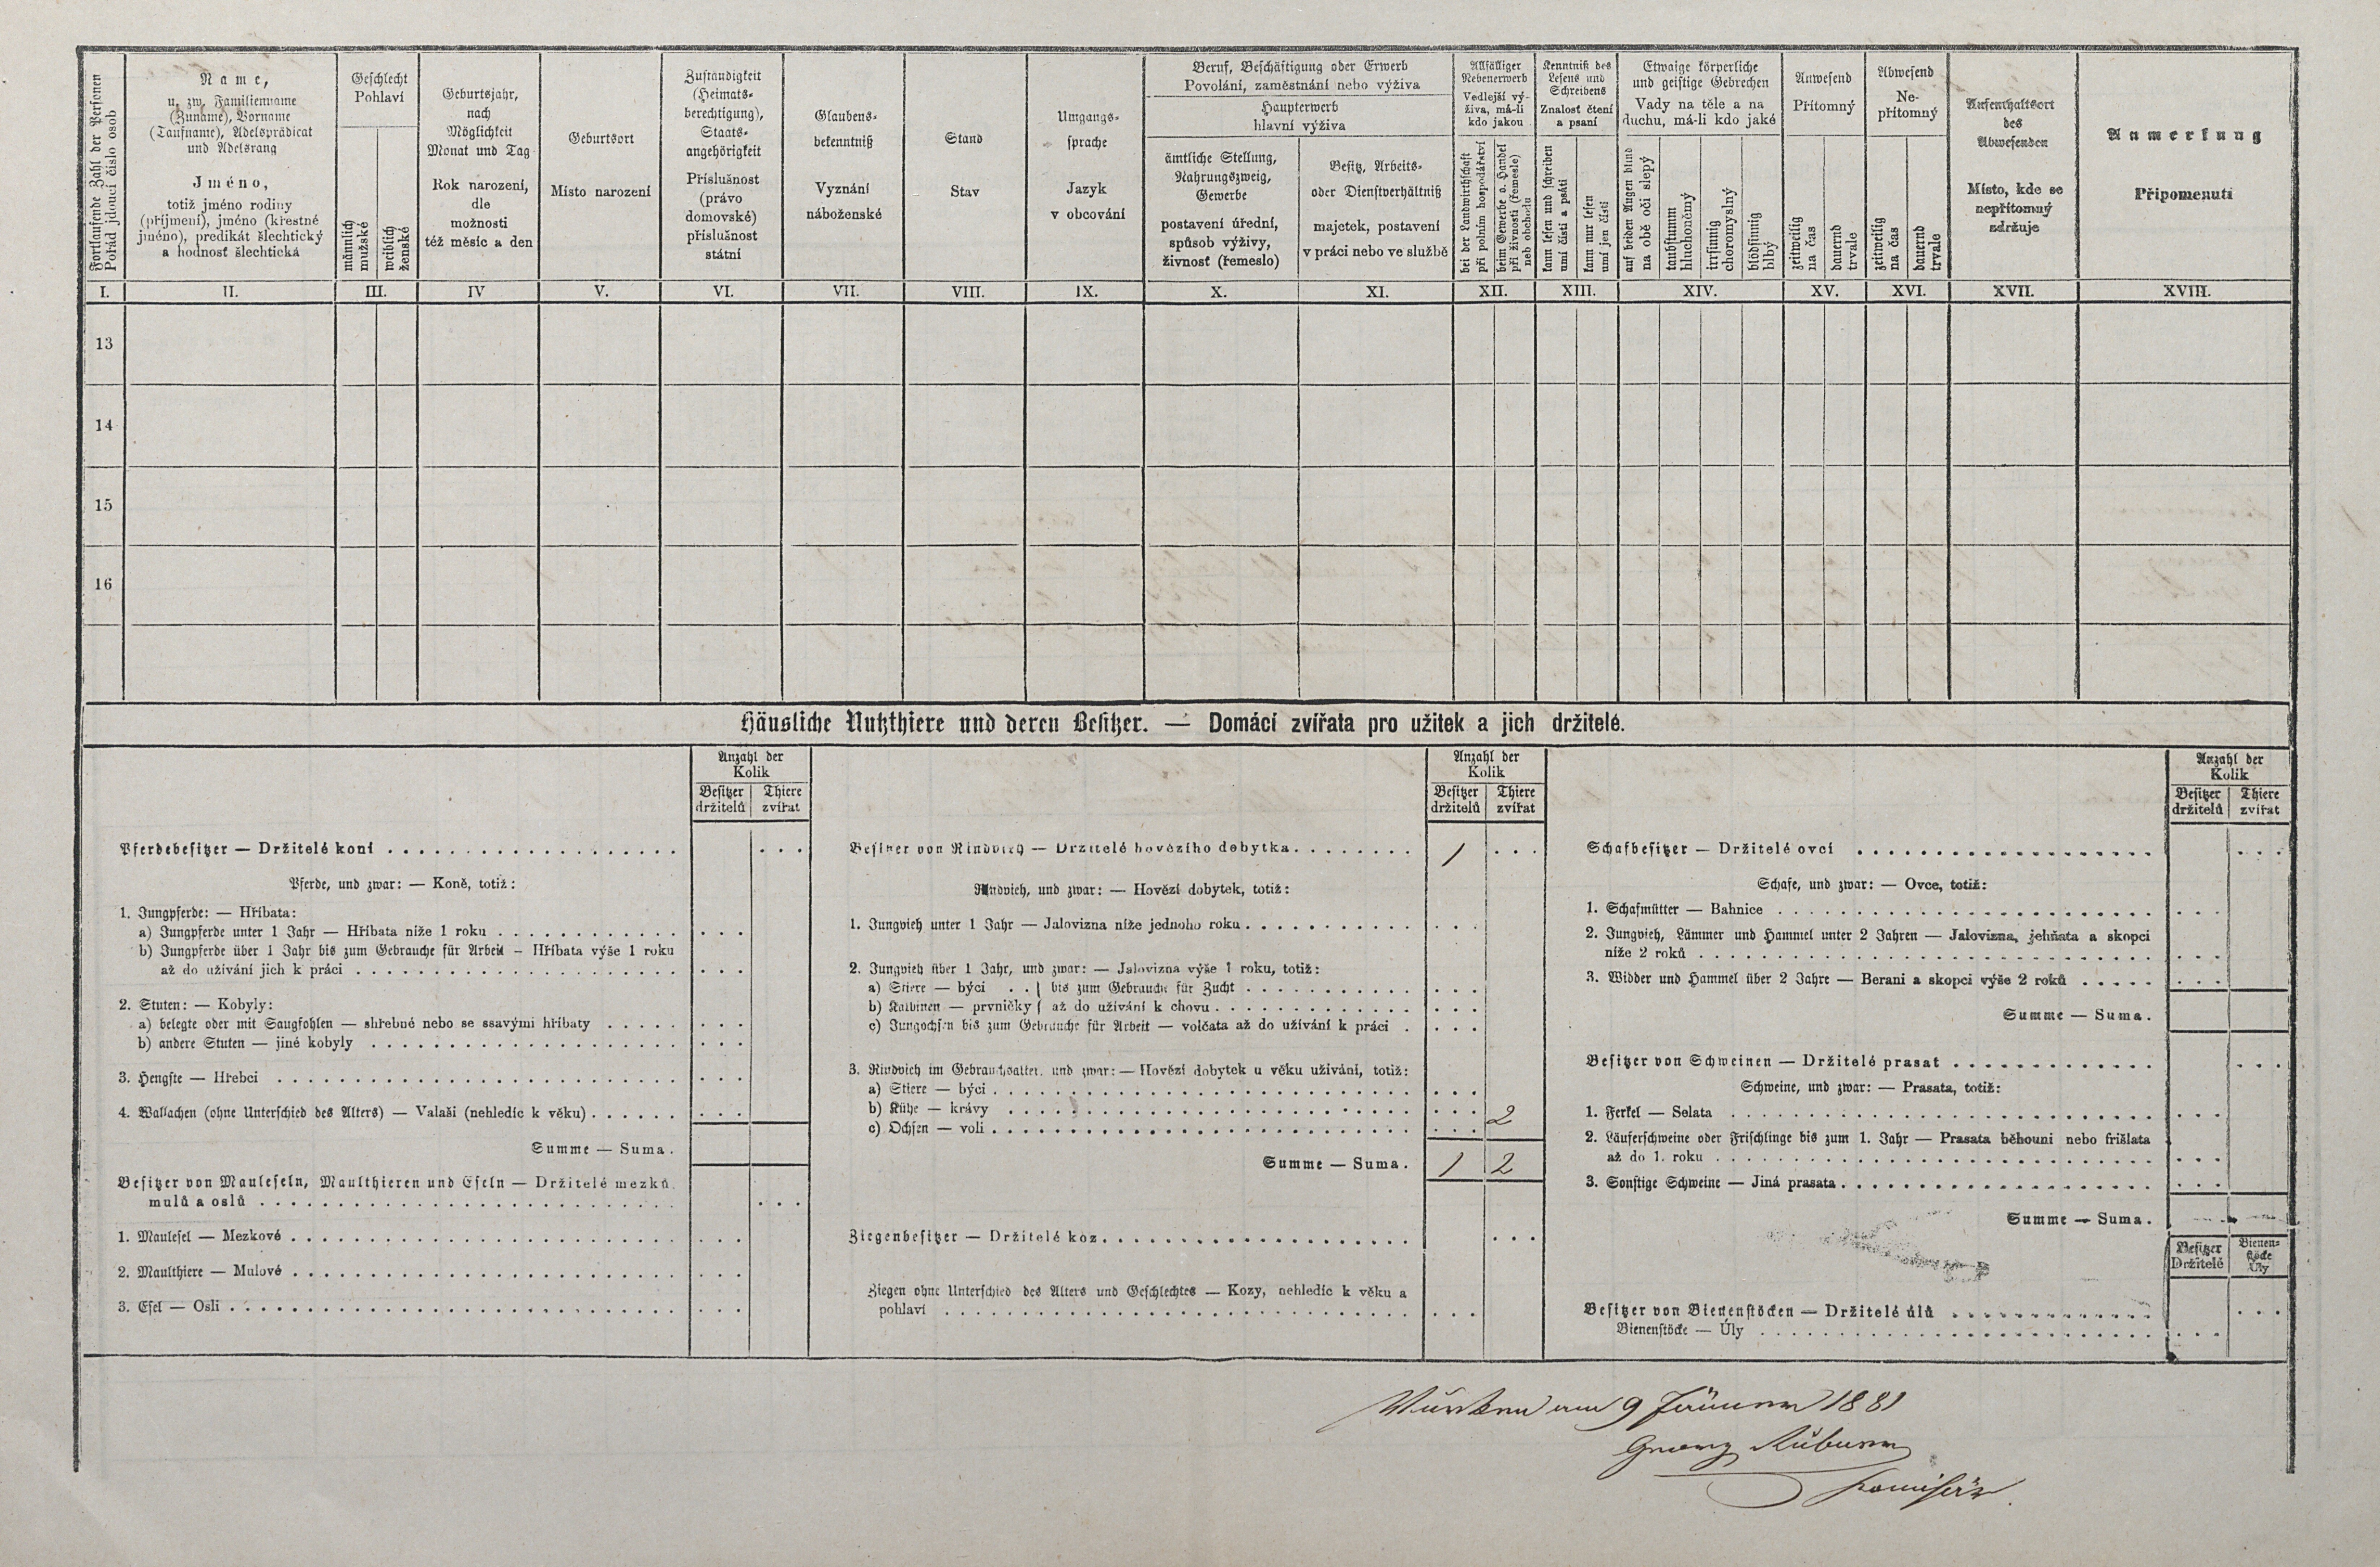 Fortlaufende Zahl der Personen
Pořád jdoucí číslo osob
Name,
u. zw. Familienname
(Zuname), Vorname
(Taufname), Adelsprädicat
und Adelsrang
Jméno,
totiž jméno rodiny
(příjmení), jméno (křestné
jméno), predikát šlechtický
a hodnosť šlechtická
Geschlecht
Pohlaví
männlich
mužské
weiblich
ženské
Geburtsjahr,
nach
Möglichkeit
Monat und Tag
Rok narození,
dle
možnosti
též měsíc a den
Geburtsort
Místo narození
Zuständigkeit
(Heimats-
berechtigung),
Staats-
angehörigkeit
Příslušnost
(právo
domovské)
příslušnost
státní
Glaubens-
bekenntniß
Vyznání
náboženské
Stand
Stav
Umgangs-
sprache
Jazyk
v obcování
Beruf, Beschäftigung oder Erwerb
Povolání, zaměstnání nebo výživa
Haupterwerb
hlavní výživa
ämtliche Stellung,
Nahrungszweig,
Gewerbe
postavení úřední,
spůsob výživy,
živnosť (řemeslo)
Besitz, Arbeits-
oder Dienstverhältniß
majetek, postavení
v práci nebo ve službě
Allfälliger
Nebenerwerb
Vedlejší vý-
živa, má-li
kdo jakou
bei der Landwirthschaft
při polním hospodářství
beim Gewerbe o. Handel
při živnosti (řemesle)
neb obchodu
Kenntniß des
Lesens und
Schreibens
Znalosť čtení
a psaní
kann lesen und schreiben
umí čísti a psáti
kann nur lesen
umí jen čísti
Etwaige körperliche
und geistige Gebrechen
Vady na těle a na
duchu, má-li kdo jaké
auf beiden Augen blind
na obě oči slepý
taubstumm
hluchoněmý
irrsinnig
choromyslný
blödsinnig
blbý
Anwesend
Přítomný
zeitweilig
na čas
dauernd
trvale
Abwesend
Ne-
přítomný
zeitweilig
na čas
dauernd
trvale
Aufenthaltsort
des
Abwesenden
Místo, kde se
nepřítomný
zdržuje
Anmerkung
Připomenutí
I. II. III. IV V. VI. VII. VIII. IX. X. XI. XII. XIII. XIV. XV. XVI. XVII. XVIII.
13
14
15
16
Häusliche Nutzthiere und deren Besitzer. — Domácí zvířata pro užitek a jich držitelé.
Anzahl der
Kolik
Besitzer Thiere
držitelů zvířat
Pferdebesitzer — Držitelé koní
Pferde, und zwar: — Koně, totiž:
1. Jungpferde: — Hříbata:
a) Jungpferde unter 1 Jahr — Hříbata níže 1 roku
b) Jungpferde über 1 Jahr bis zum Gebrauche für Arbeit – Hříbata výše 1 roku
až do užívání jich k práci
2. Stuten: — Kobyly:
a) belegte oder mit Saugfohlen — shřebné nebo se ssavými hříbaty
b) andere Stuten — jiné kobyly
3. Hengste — Hřebci
4. Wallachen (ohne Unterschied des Alters) — Valaši (nehledíc k věku)
Summe — Suma.
Besitzer von Mauleseln, Maulthieren und Eseln — Držitelé mezků,
mulů a oslů
1. Maulesel — Mezkové
2. Maulthiere — Mulové
3. Esel — Osli
Anzahl der
Kolik
Besitzer Thiere
držitelů zvířat
Besitzer von Rindvieh — Držitelé hovězího dobytka 1
Rindvieh, und zwar: — Hovězí dobytek, totiž:
1. Jungvieh unter 1 Jahr — Jalovizna níže jednoho roku
2. Jungvieh über 1 Jahr, und zwar: — Jalovizna výše 1 roku, totiž:
a) Stiere — býci . . { bis zum Gebrauche für Zucht
b) Kalbinen — prvničky { až do užívání k chovu
c) Jungochsen bis zum Gebrauche für Arbeit — volčata až do užívání k práci
3. Rindvieh im Gebrauchsalter, und zwar: — Hovězí dobytek u věku užívání, totiž:
a) Stiere — býci
b) Kühe — krávy 2
c) Ochsen — voli
Summe — Suma. 1 2
Ziegenbesitzer — Držitelé koz
Ziegen ohne Unterschied des Alters und Geschlechtes — Kozy, nehledíc k věku a
pohlaví
Anzahl der
Kolik
Besitzer Thiere
držitelů zvířat
Schafbesitzer — Držitelé ovcí
Schafe, und zwar: — Ovce, totiž:
1. Schafmütter — Bahnice
2. Jungvieh, Lämmer und Hammel unter 2 Jahren — Jalovizna, jehňata a skopci
níže 2 roků
3. Widder und Hammel über 2 Jahre — Berani a skopci výše 2 roků
Summe — Suma.
Besitzer von Schweinen — Držitelé prasat
Schweine, und zwar: — Prasata, totiž:
1. Ferkel — Selata
2. Läuferschweine oder Frischlinge bis zum 1. Jahr — Prasata běhouni nebo frišlata
až do 1. roku
3. Sonstige Schweine — Jiná prasata
Summe — Suma.
Besitzer Bienen-
Držitelé stöcke
Úly
Besitzer von Bienenstöcken — Držitelé úlů
Bienenstöcke — Úly
am 9 Jänner 1881
Georg
Komissär